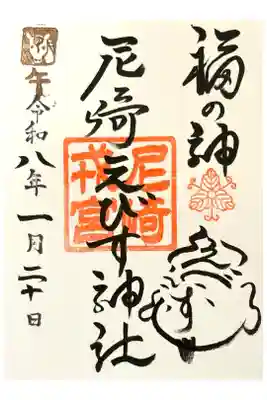 福の神
尼崎えびす神社
尼崎
戎宮
午
令和八年一月二十日